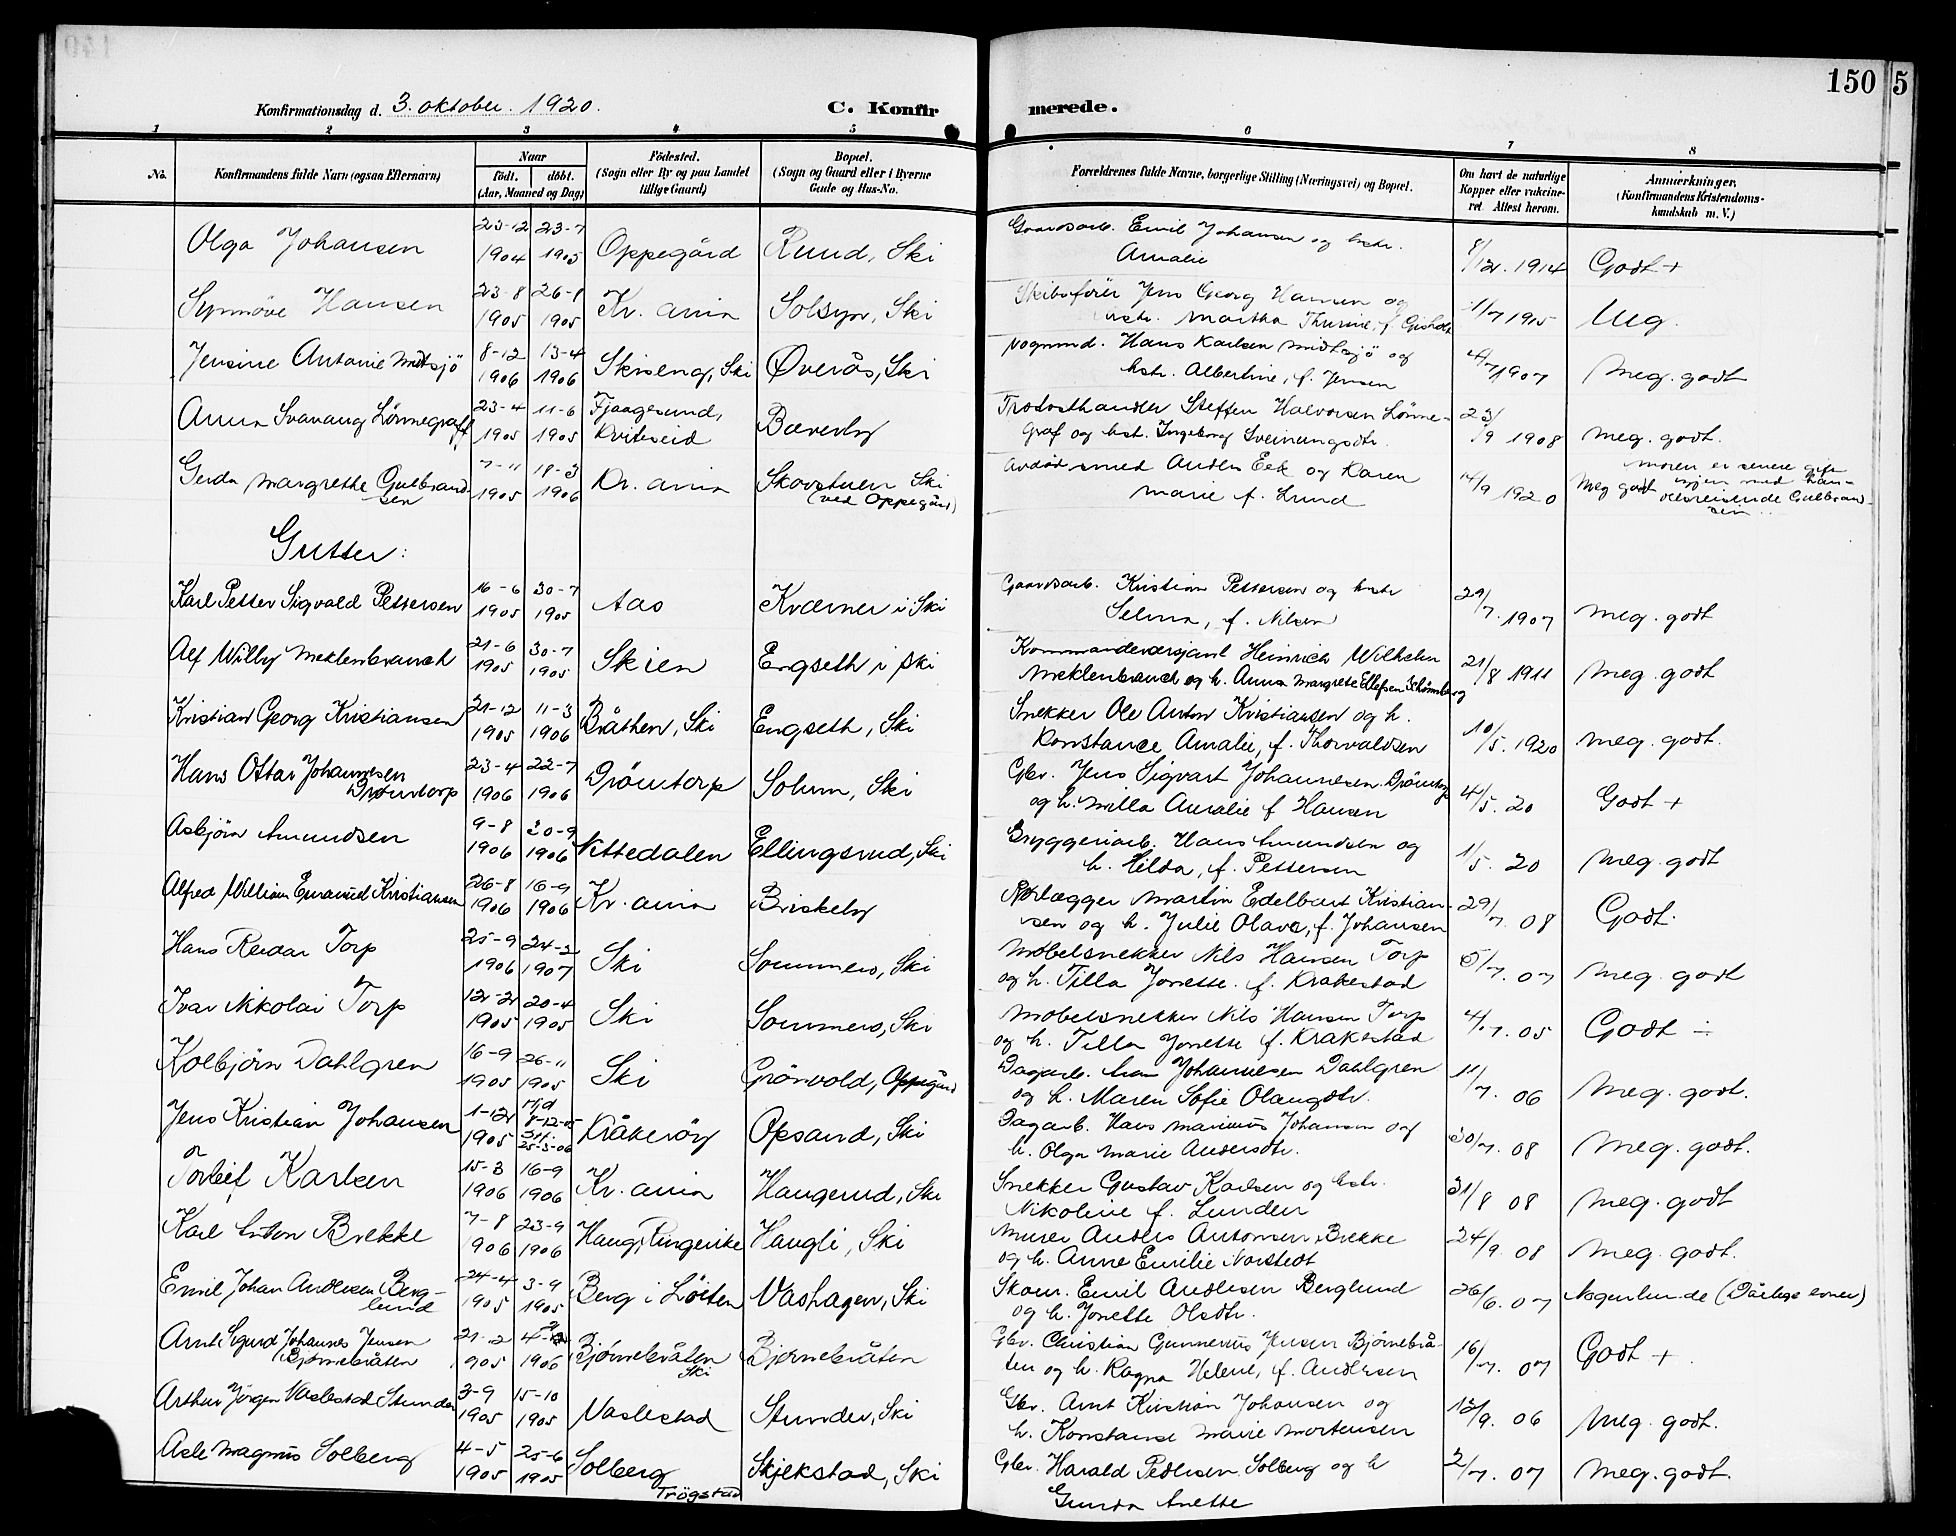 150 5
Konfirmationsdag d. 3. oktober. 1920. C. Konfir merede.
1 2 3 4 5 6 7 8
No. Konfirmandens fulde Navn (ogsaa Efternavn) Naar födt. döbt. (Aar, Maaned og Dag) Födested. (Sogn eller By og paa Landet tillige Gaard) Bopæl. (Sogn og Gaard eller i Byerne Gade og Hus-No. Forældrenes fulde Navne, borgerlige Stilling (Næringsvei) og Bopæl. Om havt de naturlige Kopper eller vakcineret Attest herom. Anmærkninger. (Konfirmandens Kristendomskundskab m. V.)
Olga Johansen 23-12 1904 23-7 1905 Oppegård Ruud, Ski Gaardsarb. Emil Johansen og hstr. Amalie 8/12. 1914 Godt +
Synnöve Hansen 23-8 1905 26-8 1905 Kr. ania Solsyn, Ski Skibsförer Jens Georg Hansen og hstr. Martha Thurine, f. 11/7 1915 Meg.
Jensine Antonie Midtsjö 8-12 1906 13-4 1906 Skiseng, Ski Överås, Ski Vognmd. Hans Karlsen Midtsjö og hstr. Albertine, f. Jensen 4/7 1907 Meg. godt
Anna Svanaug Lönnegraff 23-4 1905 11-6 1905 Fjaagesund, Kviteseid Bæverby Steffen Halvorsen Lönnegraf og hst. Ingeborg Sveinungsdtr. 23/9 1908 Meg. godt.
Gerda Margrethe Gulbrandsen 7-11 1905 18-3 1906 Kr. ania Skovstuen Ski (ved Oppegård) Avdöd smed Anders Eek og Karen Marie f. Lund 14/9 1920 Meg godt Moren er senere gift igjen med handelsreisende Gulbrandsen
Gutter:
Karl Petter Sigvald Pettersen 16-6 1905 30-7 1905 Aas Kværner i Ski Gaardsarb. Kristian Pettersen og hustr Selma, f. Nilsen 29/7. 1907 Meg. godt
Alf Willy Meklenbrauch 21-6 1905 30-7 1905 Skien Engseth i Ski Kommandersersjant Heinrich Wilhelm Meklenbrauch og h. Anna Margrete Ellefsen Schönneberg 21/8 1911 Meg. godt
Kristian Georg Kristiansen 21-12 1905 11-3 1906 Bråthen, Ski Engseth, Ski Snekker Ole Anton Kristiansen og h. Konstance Amalie, f. Thorvaldsen 10/5. 1920 Meg. godt.
Hans Ottar Johannesen Drömtorp 23-4 1906 22-7 1906 Drömtorp Solum, Ski Gbr. Jens Sigvart Johannesen Drömtorp og h. Milla Amalie f Hansen 4/5. 20 Godt +
Asbjörn Amundsen 9-8 1906 30-9 1906 Nittedalen Ellingsrud, Ski Bryggeriarb. Hans Amundsen og h. Hilda, f. Pettersen 1/5. 20 Meg. godt
Alfred William Emanuel Kristiansen 26-8 1906 16-9 1906 Kr. ania Briskeby Rörlægger Martin Edelbart Kristiansen og h. Julie Olava, f. Johansen 29/7. 08 Godt.
Hans Reidar Torp 25-9 1906 24-2 1907 Ski Sommero, Ski Möbelsnekker Nils Hansen Torp og h. Tilla Jonette. f. Krakestad 5/7. 07 Meg. godt
Ivar Nikolai Torp 12-2 1905 20-4 1905 Ski Sommero, Ski Möbelsnekker Nils Hansen Torp og h. Tilla Jonette f. Krakestad 4/7. 05 Godt ÷
Kolbjörn Dahlgren 16-9 1905 26-11 1905 Ski Grönvold, Oppegård Dagarb. Johannesen Dahlgren og h. Maren Sofie Olaugdtr. 11/7. 06 Meg. godt.
Jens Kristian Johansen 1-12 1905 Hjd 8-12-05 Stf. 25-3-06 Kråkeröy Opsand, Ski Dagarb. Hans Marinius Johansen og h. Olga Marie Andersdtr. 30/7. 08 Meg. godt.
Torleif Karlsen 15-3 1906 16-9 1906 Kr. ania Haugerud, Ski Snekker Gustav Karlsen og hstr. Nikoline f. Lunden 31/8 08 Meg. godt
Karl Anton Brekke 7-8 1906 23-9 1906 Haug, Ringerike Haugli, Ski Murer Anders Antonsen Brekke og h. Anne Emilie Norstedt 24/9. 08 Meg. godt.
Emil Johan Andersen Berglund 24-4 1905 3-9 1905 Berg i Löiten Vashagen, Ski Skom. Emil Andersen Berglund og h. Jonette Olsdtr. 26/6. 07 Nogenlunde (Dårlige evner)
Arnt Sigurd Johannes Jensen Bjørnebråten 21-2 1905 1906 Bjørnebråten Ski Bjørnebråten Gbr. Christian Gunnerius Jensen Bjørnebråten og h. Ragna Helene, f. Andersen 16/7. 07 Godt +
Arthur Jörgen Vaslestad Stunder 3-9 1905 15-10 1905 Vaslestad Stunder, Ski Gbr. Arnt Kristian Johansen og h. Konstanse Marie Mortensen 12/9. 06 Meg. godt.
Asle Magnus Solberg 4-5 1905 25-6 1905 Solberg Trögstad Skjekstad, Ski Gbr. Harald Pedersen Solberg og h Gunda Anette 2/7. 07 Meg. godt.